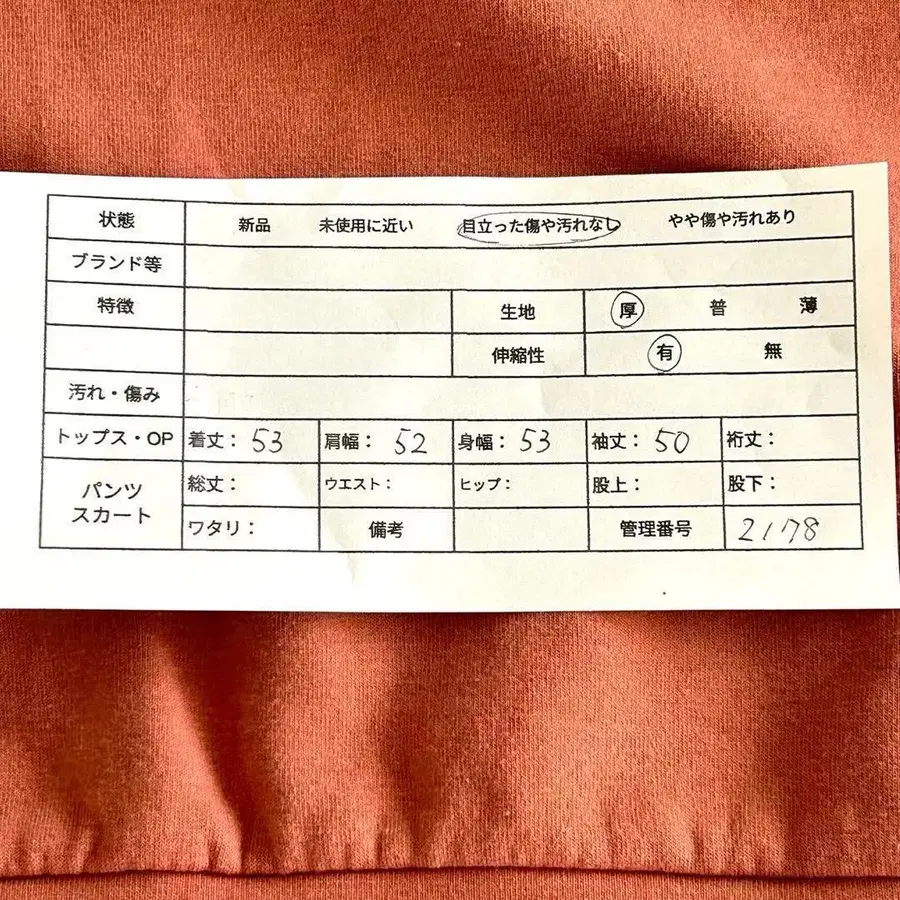 状態 新品 未使用に近い 目立った傷や汚れなし やや傷や汚れあり
ブランド等
特徴 生地 厚 普 薄
伸縮性 有 無
汚れ・傷み
トップス・OP 着丈： 53 肩幅： 52 身幅： 53 袖丈： 50 裄丈：
パンツ スカート 総丈： ウエスト： ヒップ： 股上： 股下：
ワタリ： 備考 管理番号 2178